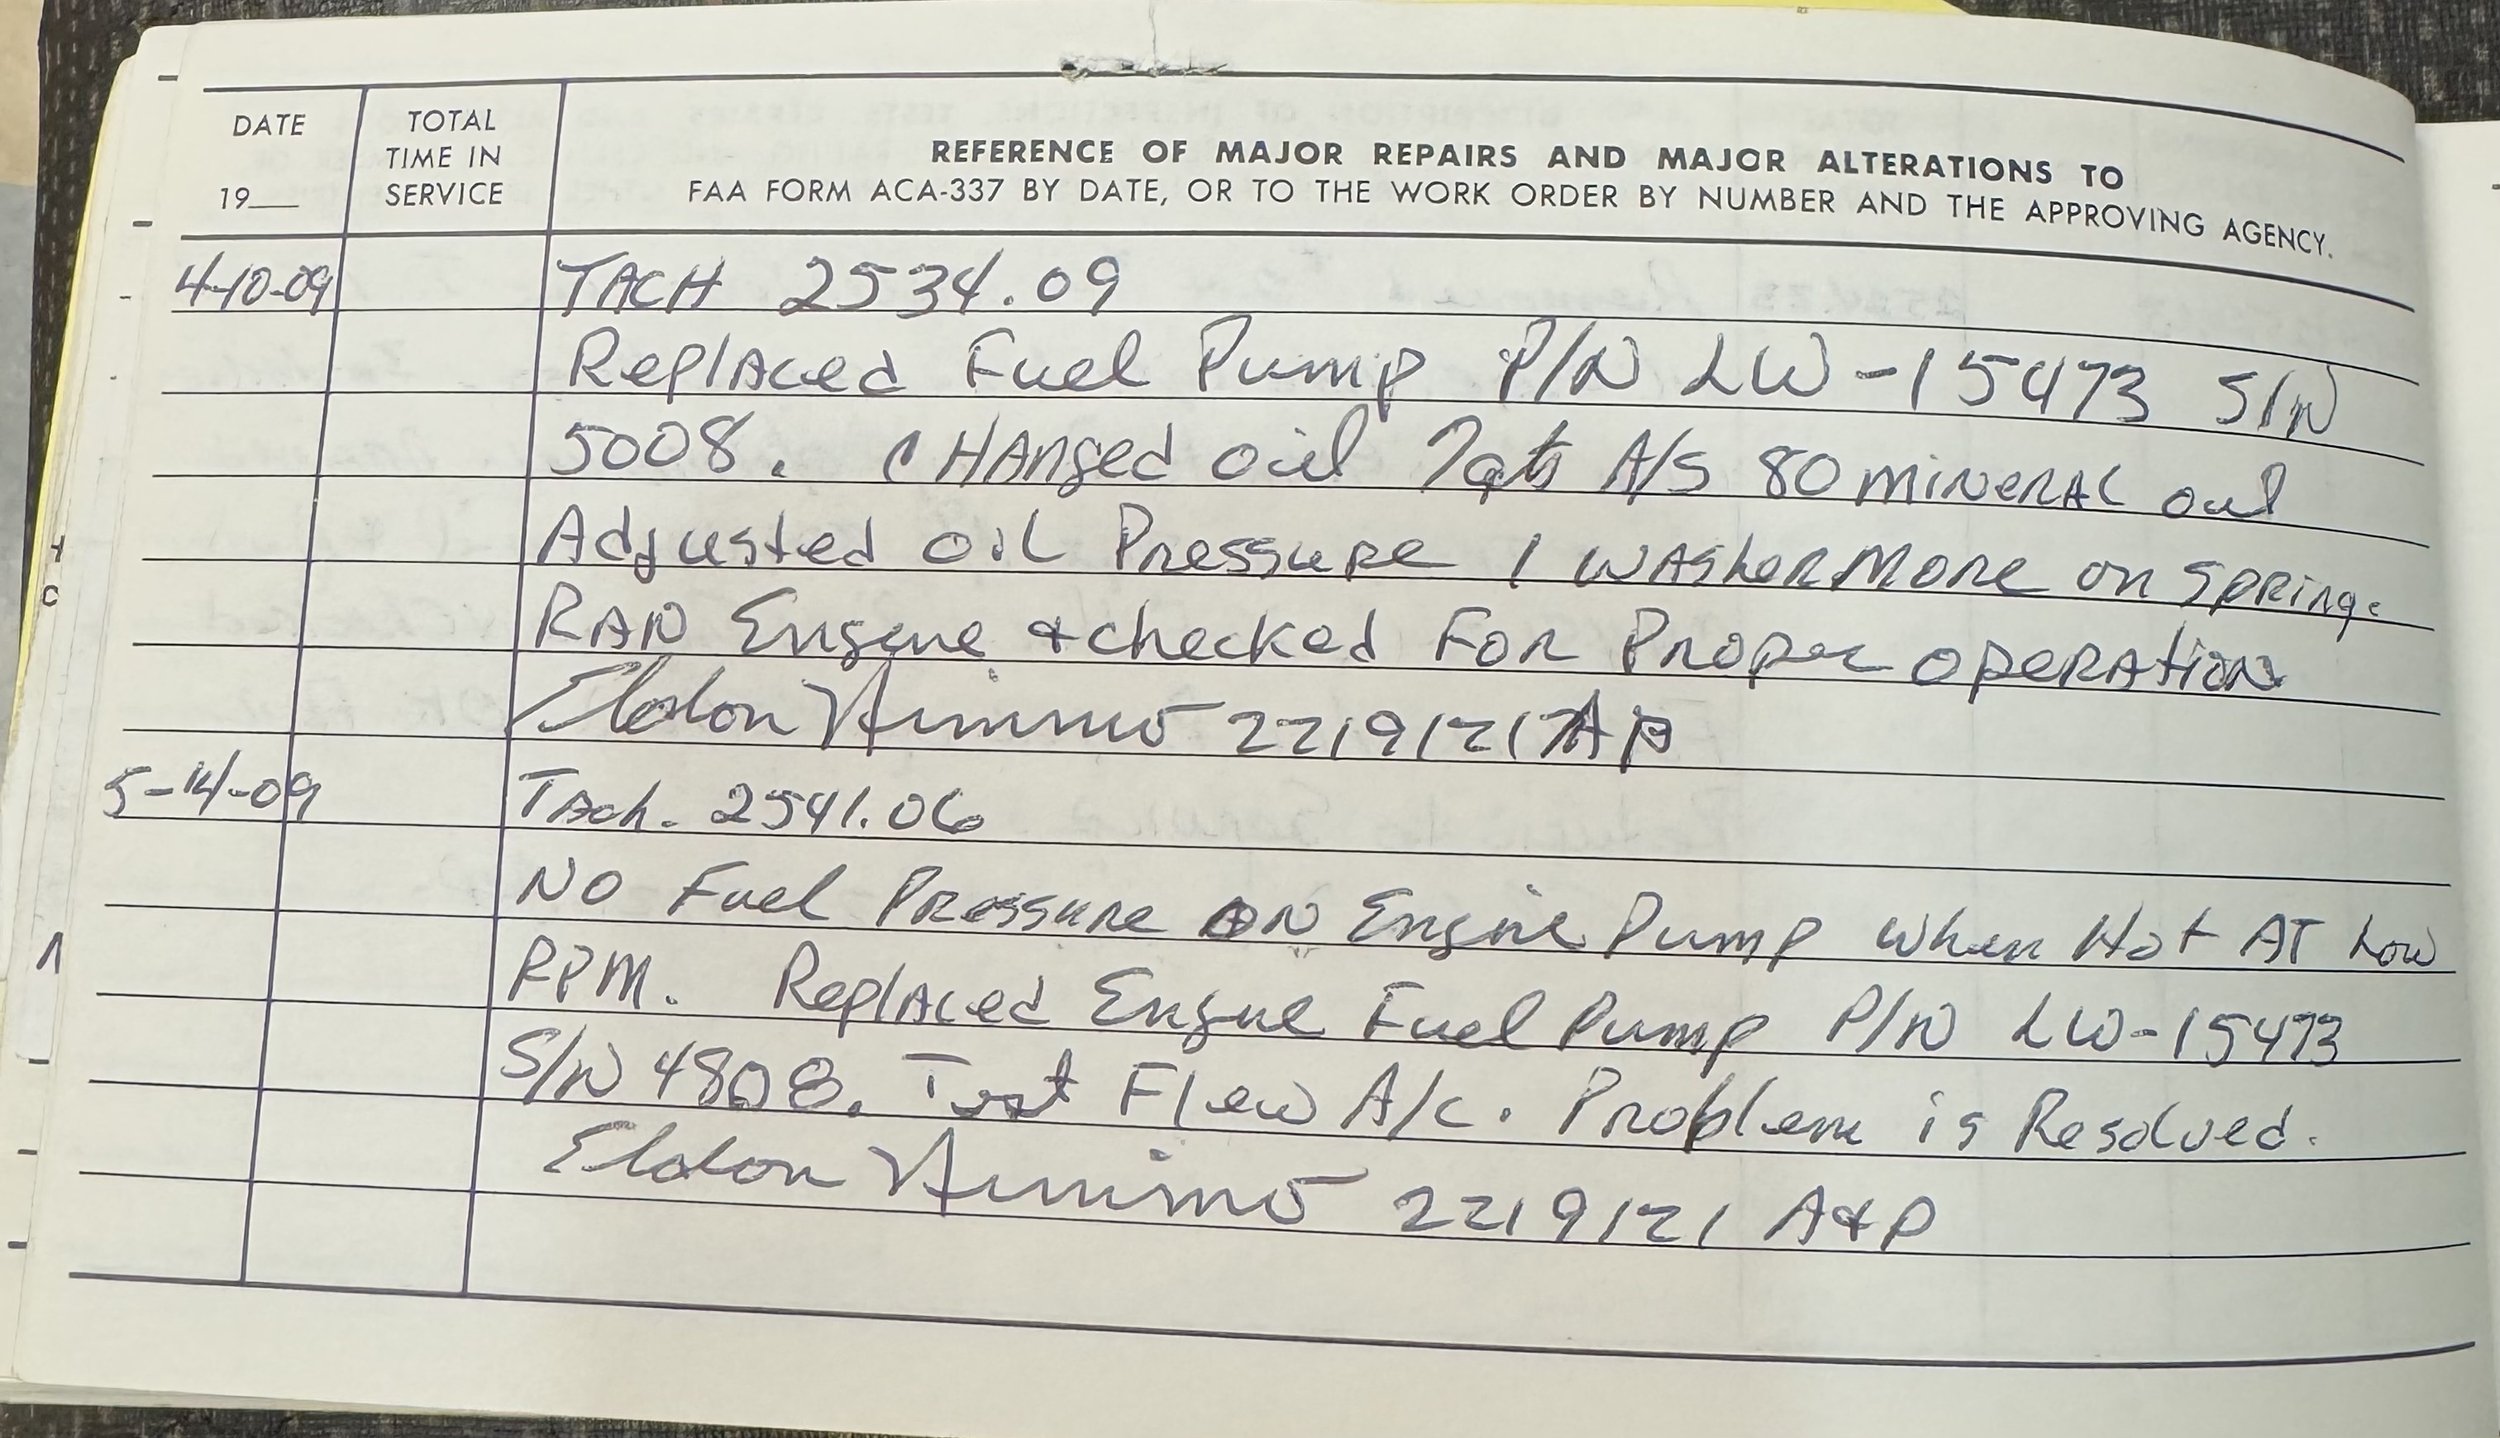 DATE
19__
TOTAL
TIME IN
SERVICE
REFERENCE OF MAJOR REPAIRS AND MAJOR ALTERATIONS TO
FAA FORM ACA-337 BY DATE, OR TO THE WORK ORDER BY NUMBER AND THE APPROVING AGENCY.
4-10-09 TACH 2534.09
Replaced Fuel Pump P/N LW-15473 S/N
5008. CHANged oil 7qts A/S 80 mineral oil
Adjusted oil Pressure 1 washer more on spring.
RAN Engine & checked For Proper operation
Eldon Nimmo 2219121 AP
5-14-09 Tach. 2541.06
NO Fuel Pressure ON Engine Pump when Hot AT Low
RPM. Replaced Engine Fuel Pump P/N LW-15473
S/N 4808. Test Flew A/C. Problem is Resolved.
Eldon Nimmo 2219121 A&P